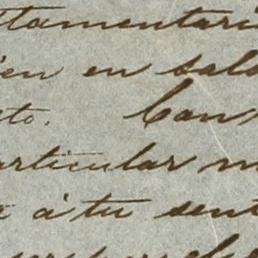 tamentari
ien en sal
to. Can
articular m
à tu sent